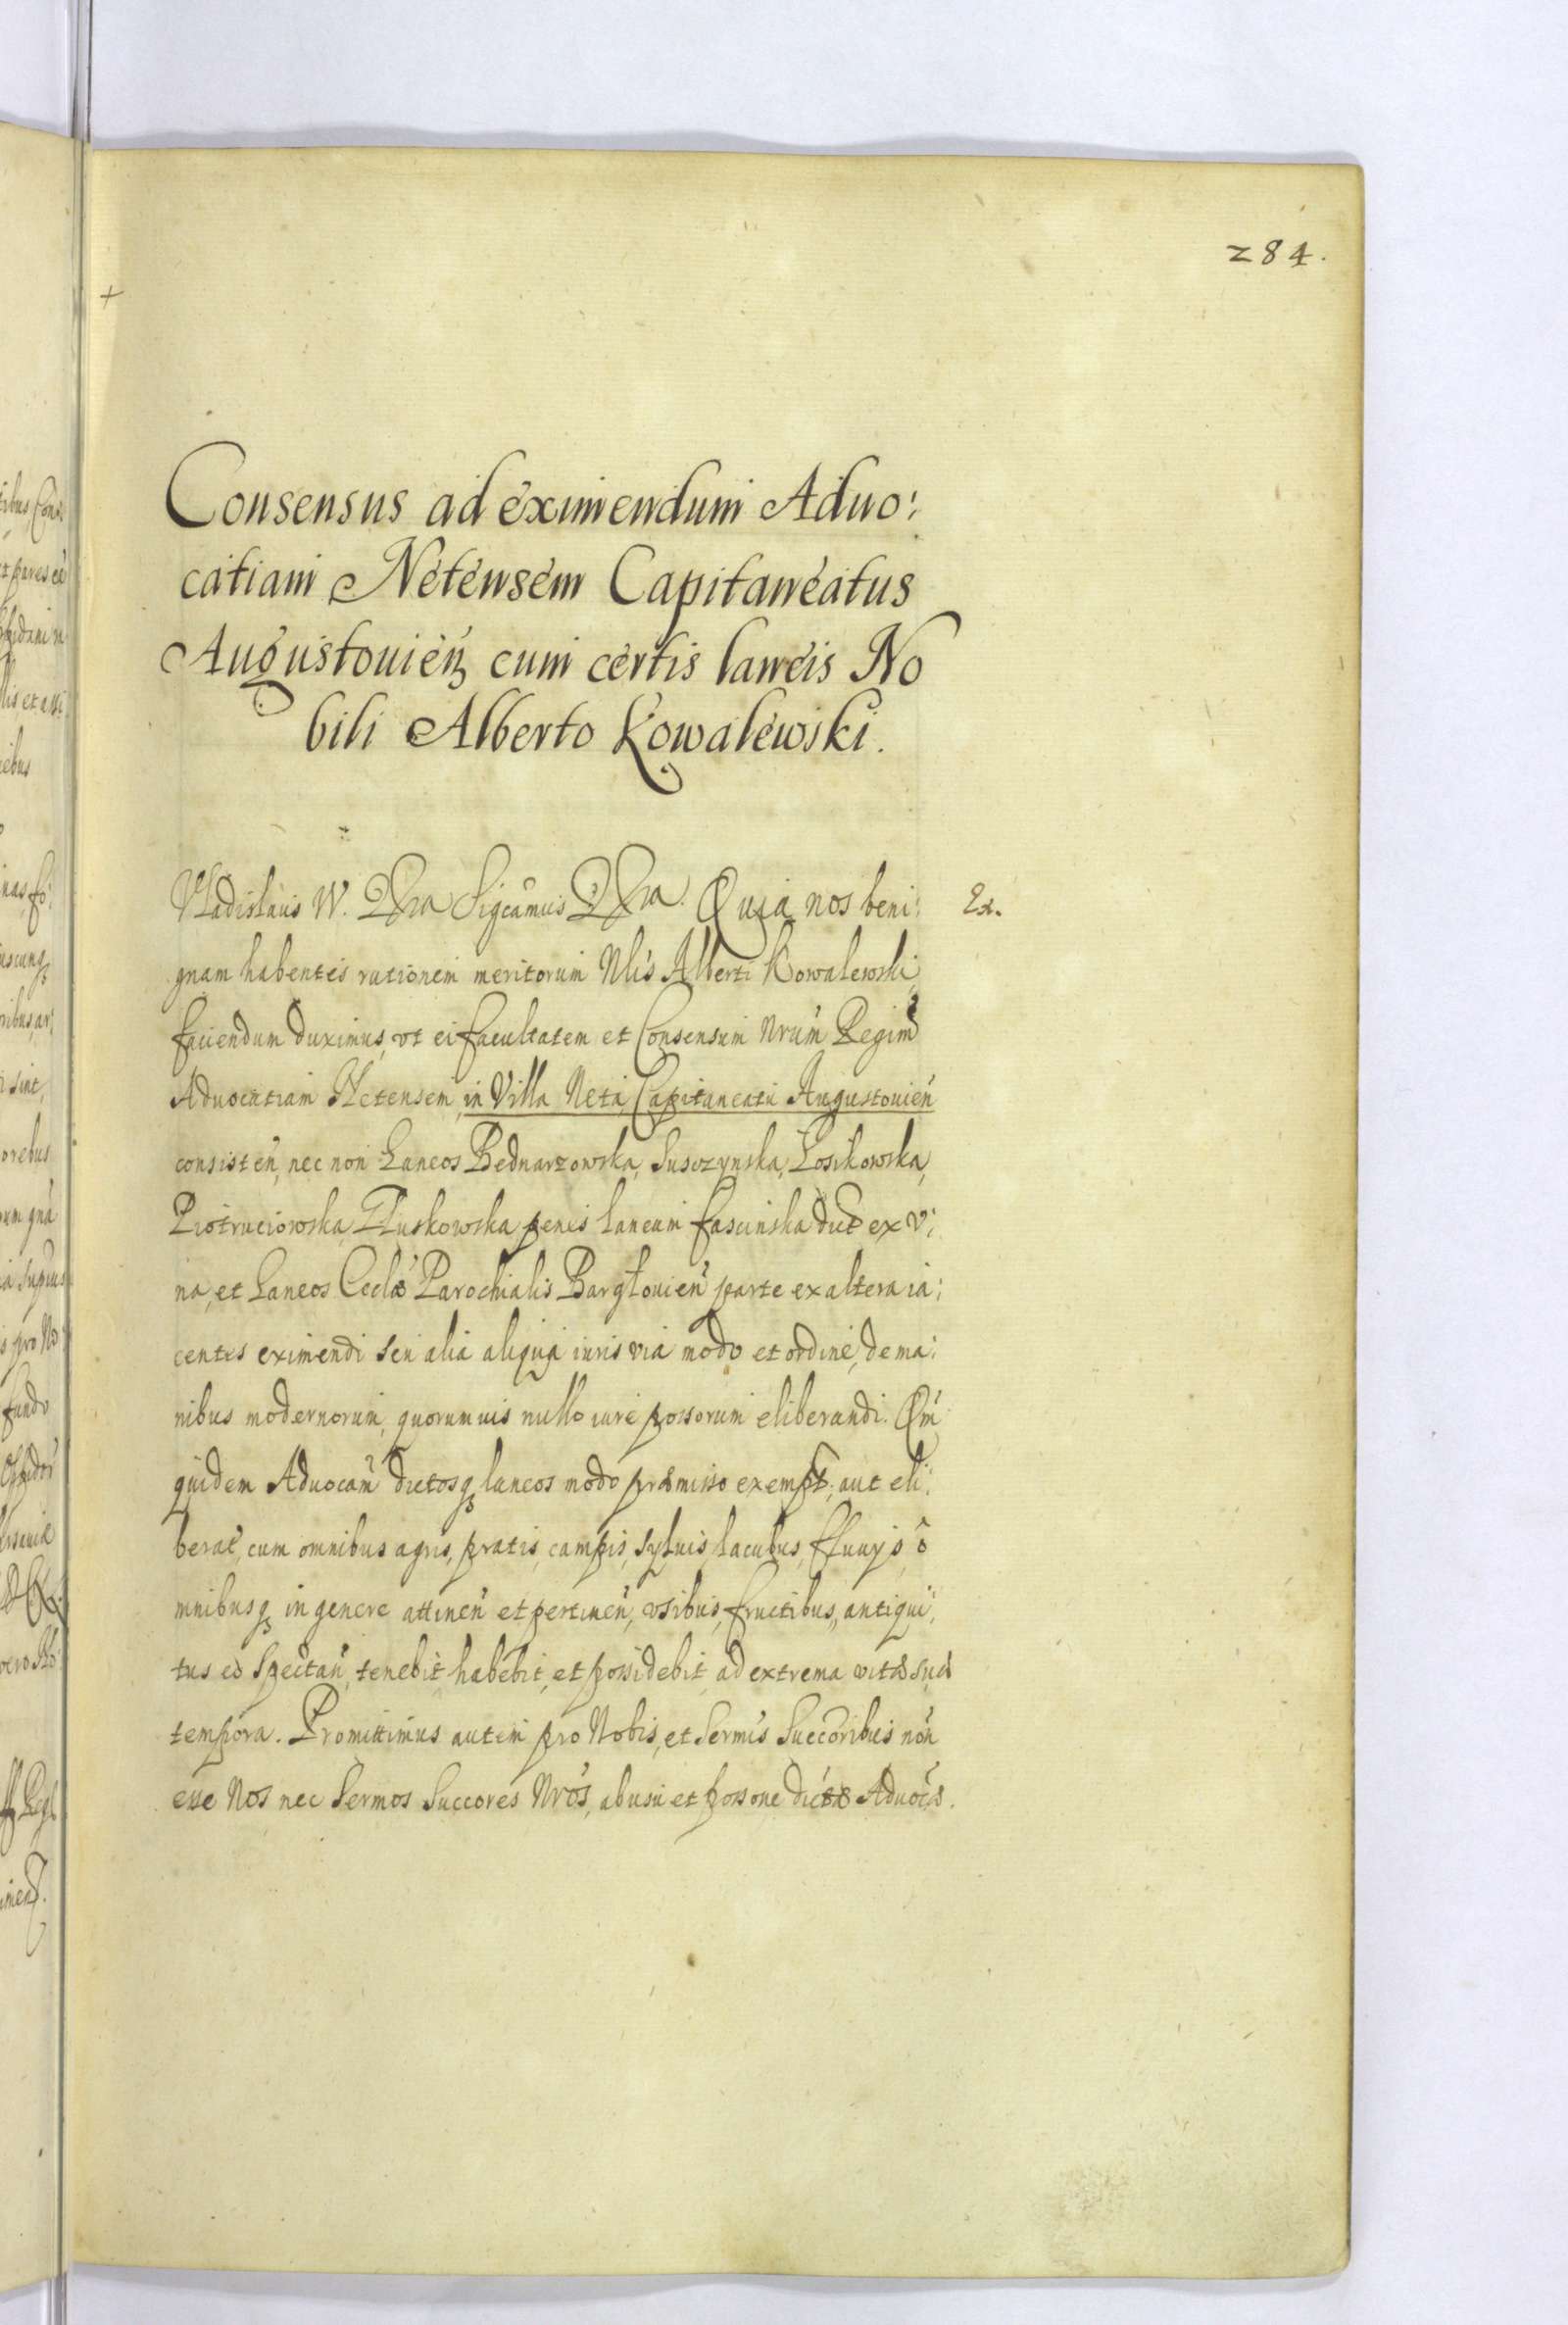 284.
Consensus ad eximendum Aduo:
catiam Netensem Capitaneatus
Augustouień cum certis laneis No
bili Alberto Kowalewski.
Vladislaus IV. Sigcamus Quia nos beni: Ex.
gnam habentes rationem meritorum Nlis Alberti Kowalewski,
faciendum duximus, vt ei facultatem et Consensum Nrum Regium
Aduocatiam Netensem, in Villa Neta, Capitaneatu Augustouień
consisteń, nec non Laneos Bednarzowska, Susczynska, Łosikowska,
Piotruciowska, Pluskowska penes laneum fascinska dict ex v:
na, et Laneos Eccłæ Parochialis Bargłouień parte ex altera ia:
centes eximendi seu alia aliqua iuris via modo et ordine, de ma:
nibus modernorum, quorumuis nullo iure possorum eliberandi. Qm
quidem Aduocam̃ dictosq laneos modo præmisso exempt; aut eli:
berat, cum omnibus agris, pratis, campis, syluis, lacubus, ffluuys, o
mnibusq in genere attineń et pertineń, vsibus, fructibus, antiqui:
tus eo spectań, tenebit habebit, et possidebit, ad extrema vitæ suæ
tempora. Promittimus autem pro Nobis, et Sermis Succoribus noń
esse Nos nec Sermos Succores Nros, abusu et possone dictæ Aduocæ.